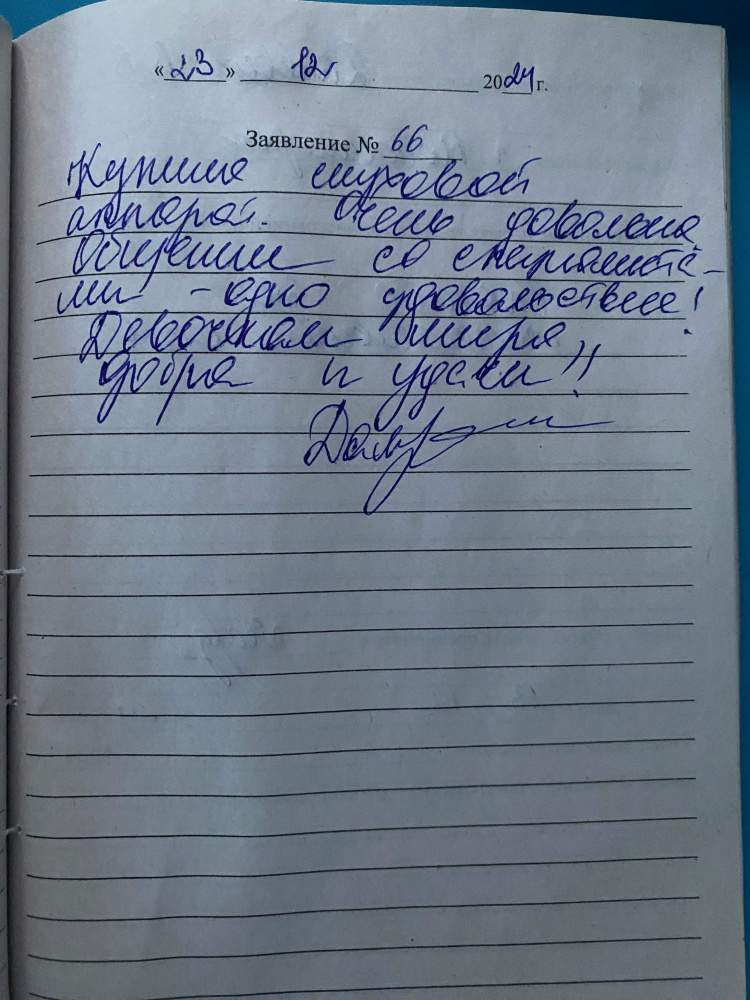 «23» 12 2024 г.
Заявление № 66
Купила слуховой
аппарат. Очень довольна
Общение со специалиста-
ми - одно удовольствие!
Девочкам мира,
добра и удачи!!